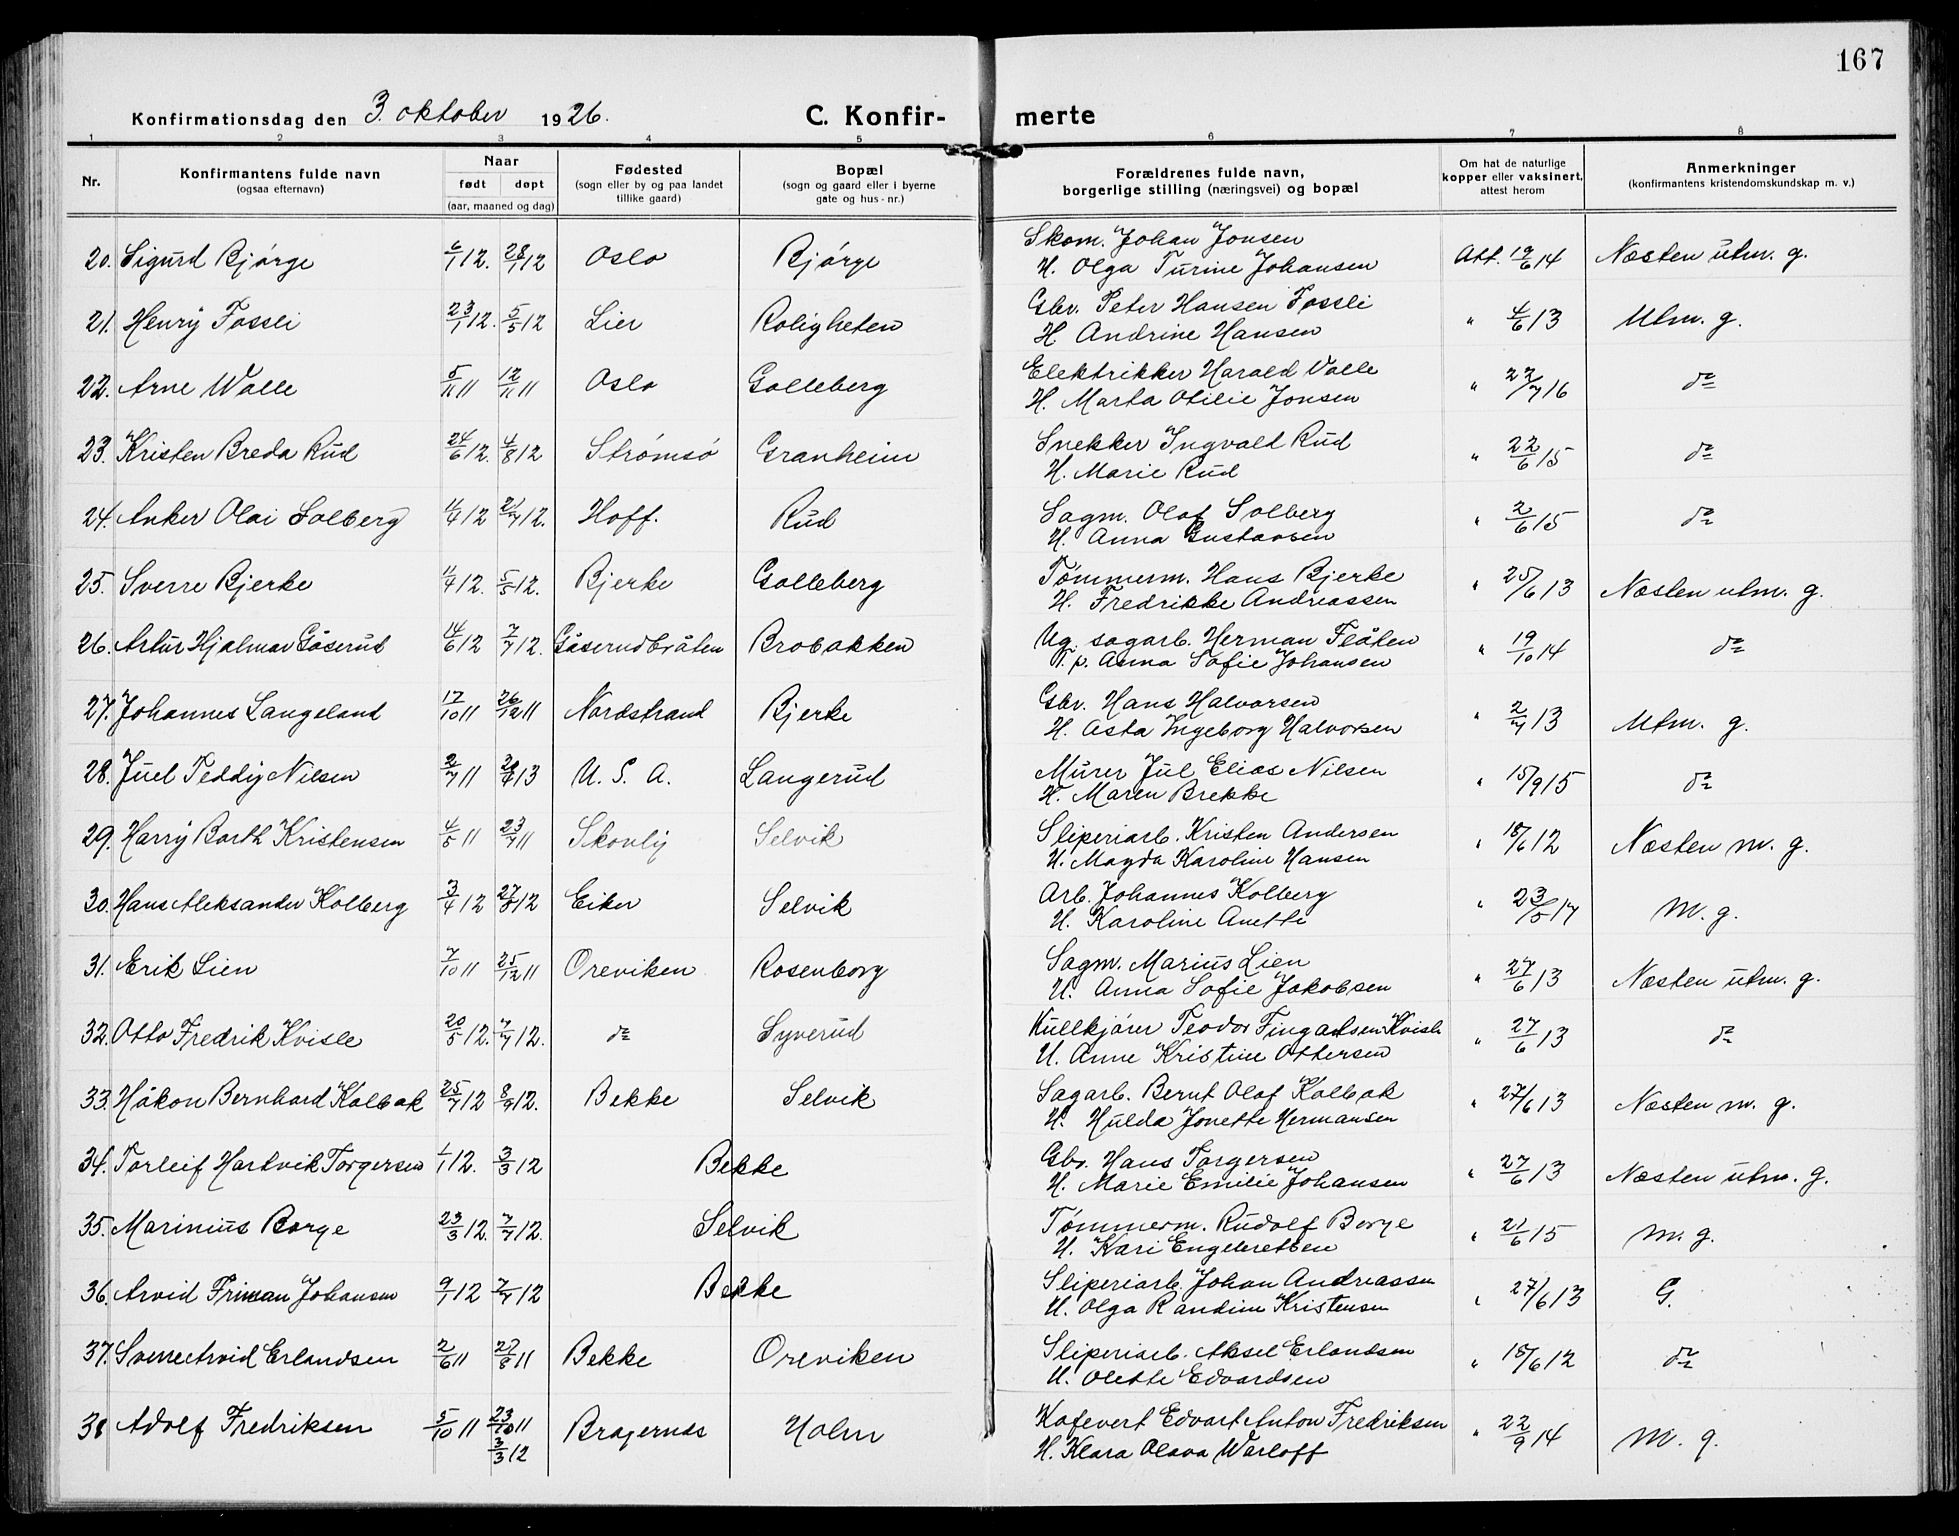 167
Konfirmationsdag den 3. oktober 1926. C. Konfir- merte
1 2 3 4 5 6 7 8
Nr. Konfirmantens fulde navn (ogsaa efternavn) Naar født døpt (aar, maaned og dag) Fødested (sogn eller by og paa landet tillike gaard) Bopæl (sogn og gaard eller i byerne gate og hus-nr.) Forældrenes fulde navn, borgerlige stilling (næringsvei) og bopæl Om hat de naturlige kopper eller vaksinert, attest herom Anmerkninger (konfirmantens kristendomskundskap m. v.)
20. Sigurd Bjørge 6/1 12. 28/1 12 Oslo Bjørge Skom. Johan Jonsen Att. 19/6 14 Næsten utm. g.
H. Olga Turine Johansen
21. Henry Fossli 23/1 12. 5/5 12 Lier Roligheten Gbr. Peter Hansen Fossli " 4/6 13 Utm. g.
H Andrine Hansen
22. Arne Walle 5/11 11 12/11 11 Oslo Golleberg Elektrikker Harald Valle " 22/7 16 do
H. Marta Otilie Jonsen
23. Kristen Breda Rud 24/6 12. 4/8 12 Strømsø Granheim Snekker Ingvald Rud " 22/6 15 do
H. Marie Rud
24. Anker Olai Solberg 4/4 12 21/7 12. Hoff. Rud Sagm. Olaf Solberg " 2/6 15 do
H. Anna Gustavsen
25. Sverre Bjerke 4/4 12. 5/5 12. Bjerke Golleberg Tømmerm. Hans Bjerke " 25/6 13 Næsten utm. g.
H. Fredrikke Andreassen
26. Artur Hjalmar Gåserud 14/6 12 7/7 12. Gåserudbråten Brobakken Ug. sagarb. Herman Flåten " 19/10 14 do
T. p. Anna Sofie Johansen
27. Johannes Langeland 17/10 11 26/12 11 Nordstrand Bjerke Gbr. Hans Halvorsen " 2/7 13 Utm. g.
H. Asta Ingeborg Halvorsen
28. Juel Teddy Nilsen 2/7 11 13 U. S. A. Langerud Murer Jul Elias Nilsen " 15/9 15 do
H. Maren Brekke
29. Harry Barth Kristensen 4/5 11 23/7 11 Skovly Selvik Sliperiarb. Kristen Andersen " 18/6 12 Næsten m. g.
H. Magda Karoline Hansen
30. Hans Aleksander Kolberg 3/4 12 27/8 12 Eiker Selvik Arb. Johannes Kolberg " 23/5 17 M. g.
H. Karoline Anette
31. Erik Lien 7/10 11 25/12 11 Oreviken Rosenborg Sagm. Marius Lien " 27/6 13 Næsten utm. g.
H. Anna Sofie Jakobsen
32. Otto Fredrik Kvisle 20/5 12. 7/7 12. do Syverud Kullkjører Teodor Kvisle " 27/6 13 do
H. Anne Kristine Ottersen
33. Håkon Bernhard Kolbak 25/7 12 8/9 12. Bekke Selvik Sagarb. Bernt Olaf Kolbak " 27/6 13 Næsten m. g.
H. Hulda Jonette Hermansen
34. Torleif Hartvik Torgersen 1/1 12. 3/3 12 Bekke Gbr. Hans Torgersen " 27/6 13 Næsten utm. g.
H. Marie Emilie Johansen
35. Marinius Borge 23/3 12. 7/7 12. Selvik Tømmerm. Rudolf Borge " 21/6 15 M. g.
H. Kari Engebretsen
36. Arvid Friman Johansen 9/1 12 7/7 12 Bekke Sliperiarb. Johan Andreassen " 27/6 13 G.
H. Olga Randine Kristensen
37. Sverre Arvid Erlandsen 2/6 11 27/8 11 Bekke Oreviken Sliperiarb. Aksel Erlandsen " 18/6 12 do
H. Olette Edvardsen
38 Adolf Fredriksen 5/10 11 23/10 11 Bragernes Holm Kafevert Edvart Anton Fredriksen " 22/9 14 M. g.
3/3 12 H. Klara Olava Warloff